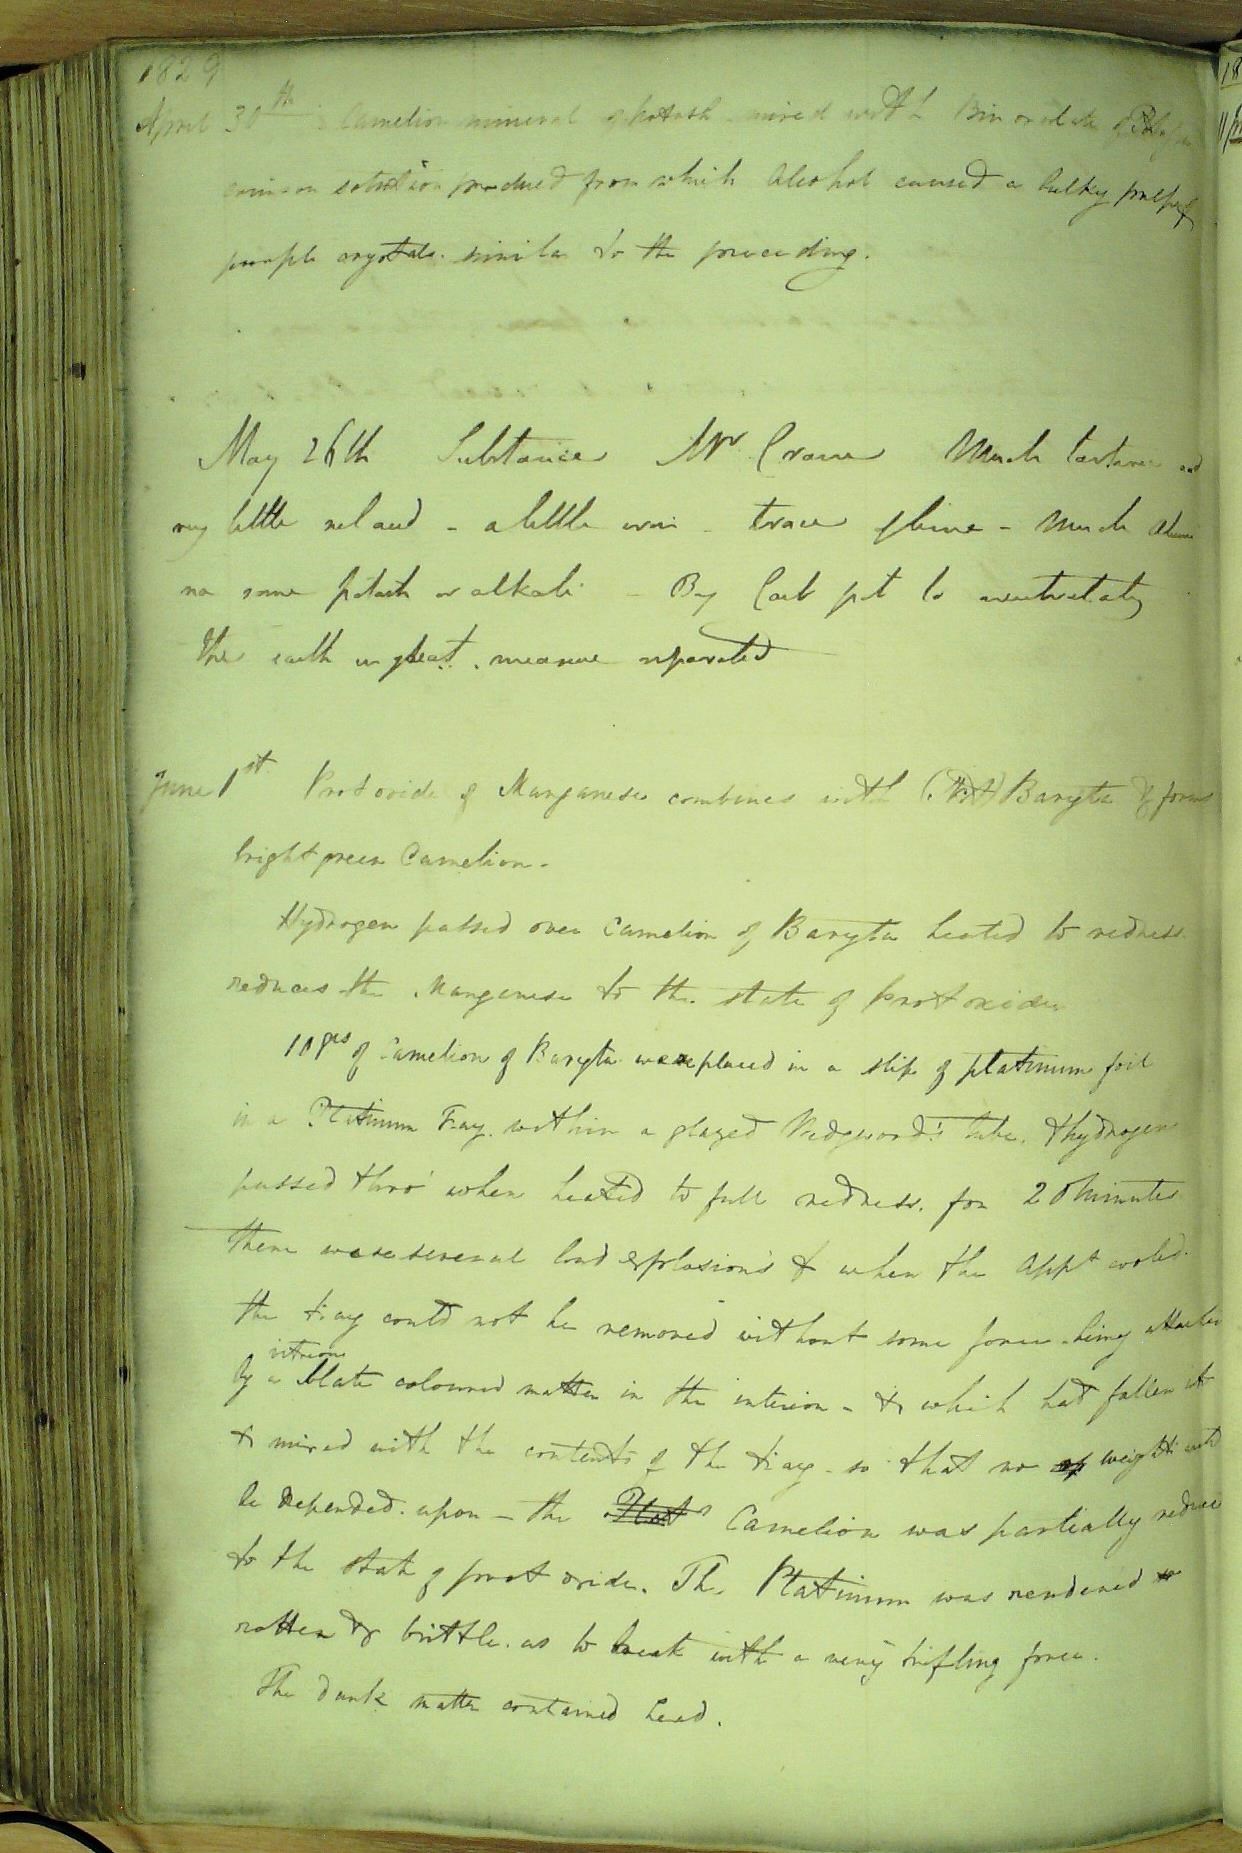 1829
April 30th Camelion mineral of potash mixed with Bin oxalate of Potash
crimson solution produced from which Alcohol caused a bulky precip of
purple crystals similar to the preceeding.
May 26th Substance Mr Crane Much tartaric and
very little sul acid - a little iron - trace of lime - Much Alumi
na some potash or alkali - By Carb pot to neutrality
the earth in great measure separated
June 1st Protoxide of Manganese combines with Baryta & forms
bright green Camelion -
Hydrogen passed over Camelion of Baryta heated to redness
reduces the Manganese to the state of Protoxide
10 grs of Camelion of Baryta were placed in a slip of platinum foil
in a Platinum Tray within a glazed Wedgwood's tube, & hydrogen
passed thro' when heated to full redness, for 20 minutes
There were several loud explosions & when the Appt cooled
the tray could not be removed without some force being attached
vitreous
by a slate coloured matter in the interior - & which had fallen
& mixed with the contents of the tray - so that no weight could
be depended upon - the Camelion was partially reduced
to the state of protoxide. The Platinum was rendered so
rotten & brittle as to break with a very trifling force.
The dark matter contained lead.